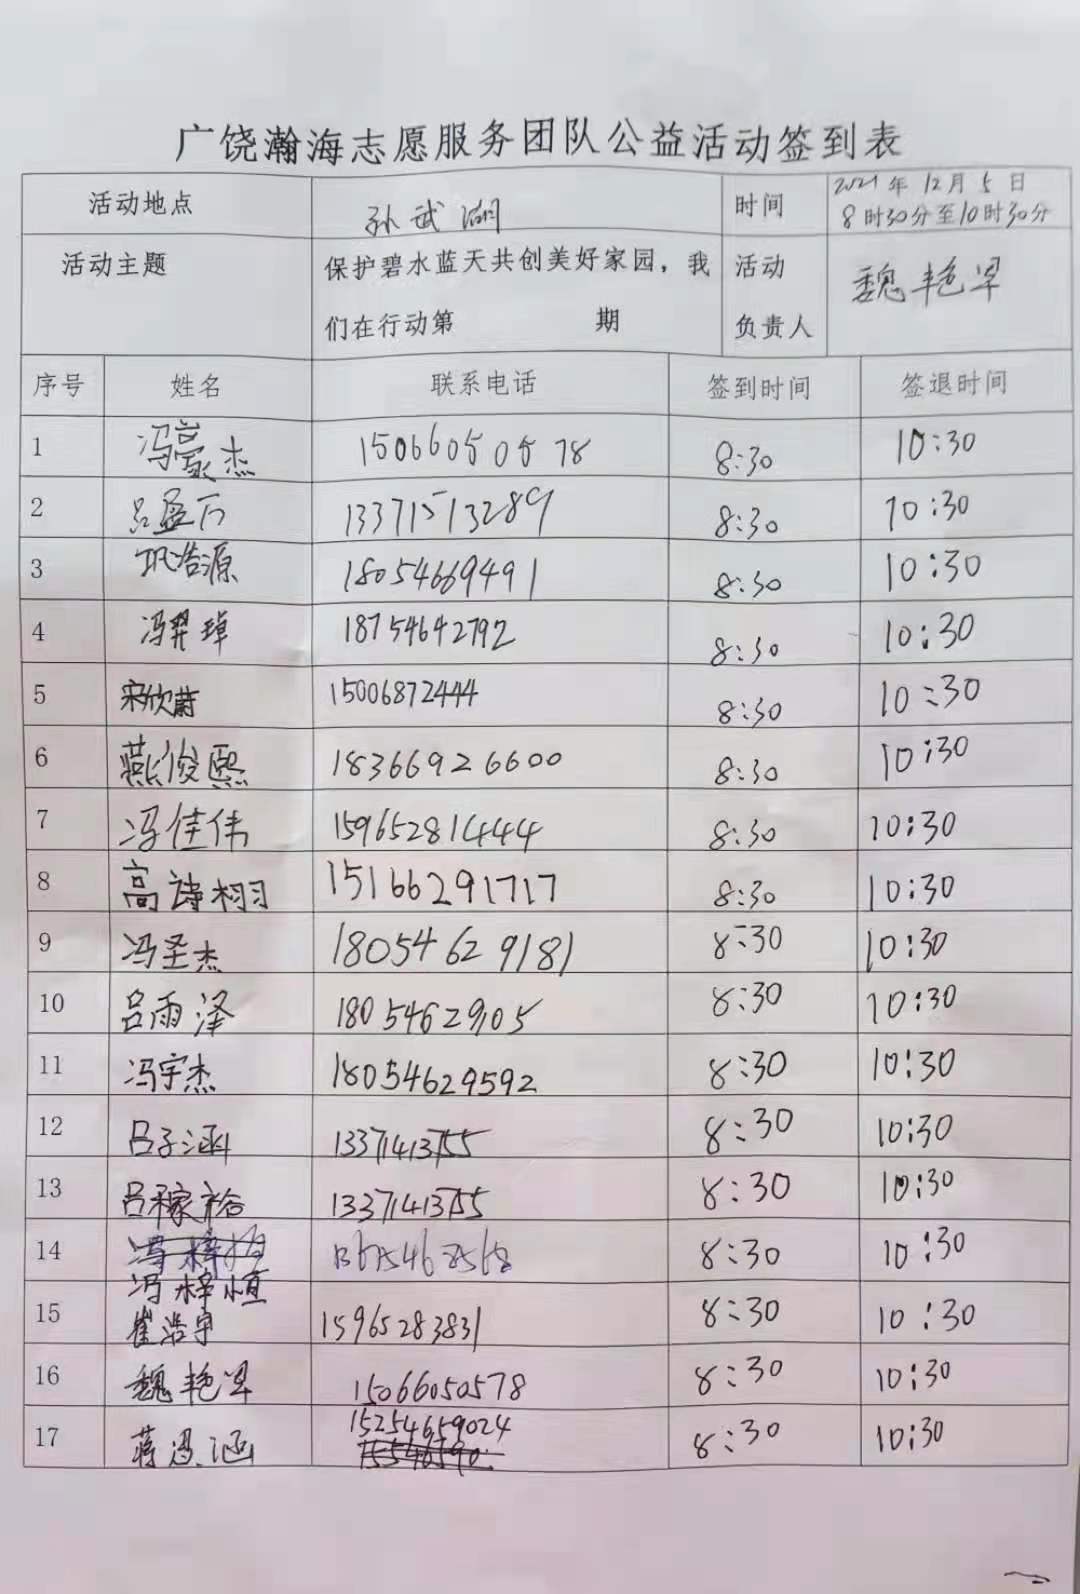 广饶瀚海志愿服务团队公益活动签到表
活动地点 孙武湖 时间 2021年12月5日
8时30分至10时30分
活动主题 保护碧水蓝天共创美好家园，我 活动 魏艳翠
们在行动第 期 负责人
序号 姓名 联系电话 签到时间 签退时间
1 冯豪杰 15066050578 8:30 10:30
2 吕盈万 13371513289 8:30 10:30
3 巩浩源 18054669491 8:30 10:30
4 冯羿璋 18754642792 8:30 10:30
5 宋欣蔚 15006872444 8:30 10:30
6 燕俊熙 18366926600 8:30 10:30
7 冯佳伟 15965281444 8:30 10:30
8 高诗栩 15166291717 8:30 10:30
9 冯圣杰 18054629181 8:30 10:30
10 吕雨泽 18054629105 8:30 10:30
11 冯宇杰 18054629592 8:30 10:30
12 吕子涵 13371413755 8:30 10:30
13 吕稼裕 13371413755 8:30 10:30
14 8:30 10:30
冯梓恒
15 崔浩宇 15965283831 8:30 10:30
16 魏艳翠 15066050578 8:30 10:30
17 蒋涵 15254659024 8:30 10:30